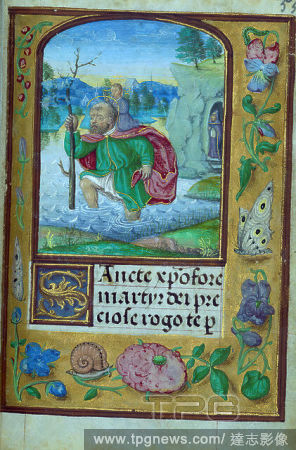 Sancte xpofore
martyr dei pre
ciose rogo te p
TPG
www.tpgnews.com/ 達志影像